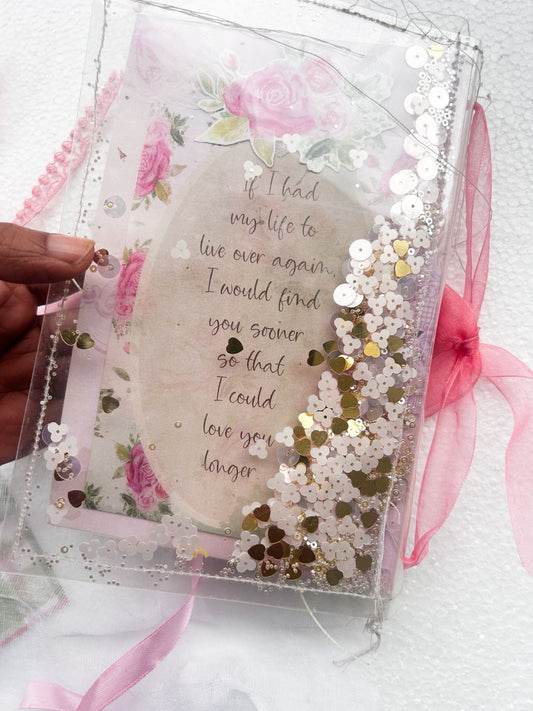 If I had
my life to
live over again,
I would find
you sooner
so that
I could
love you
longer